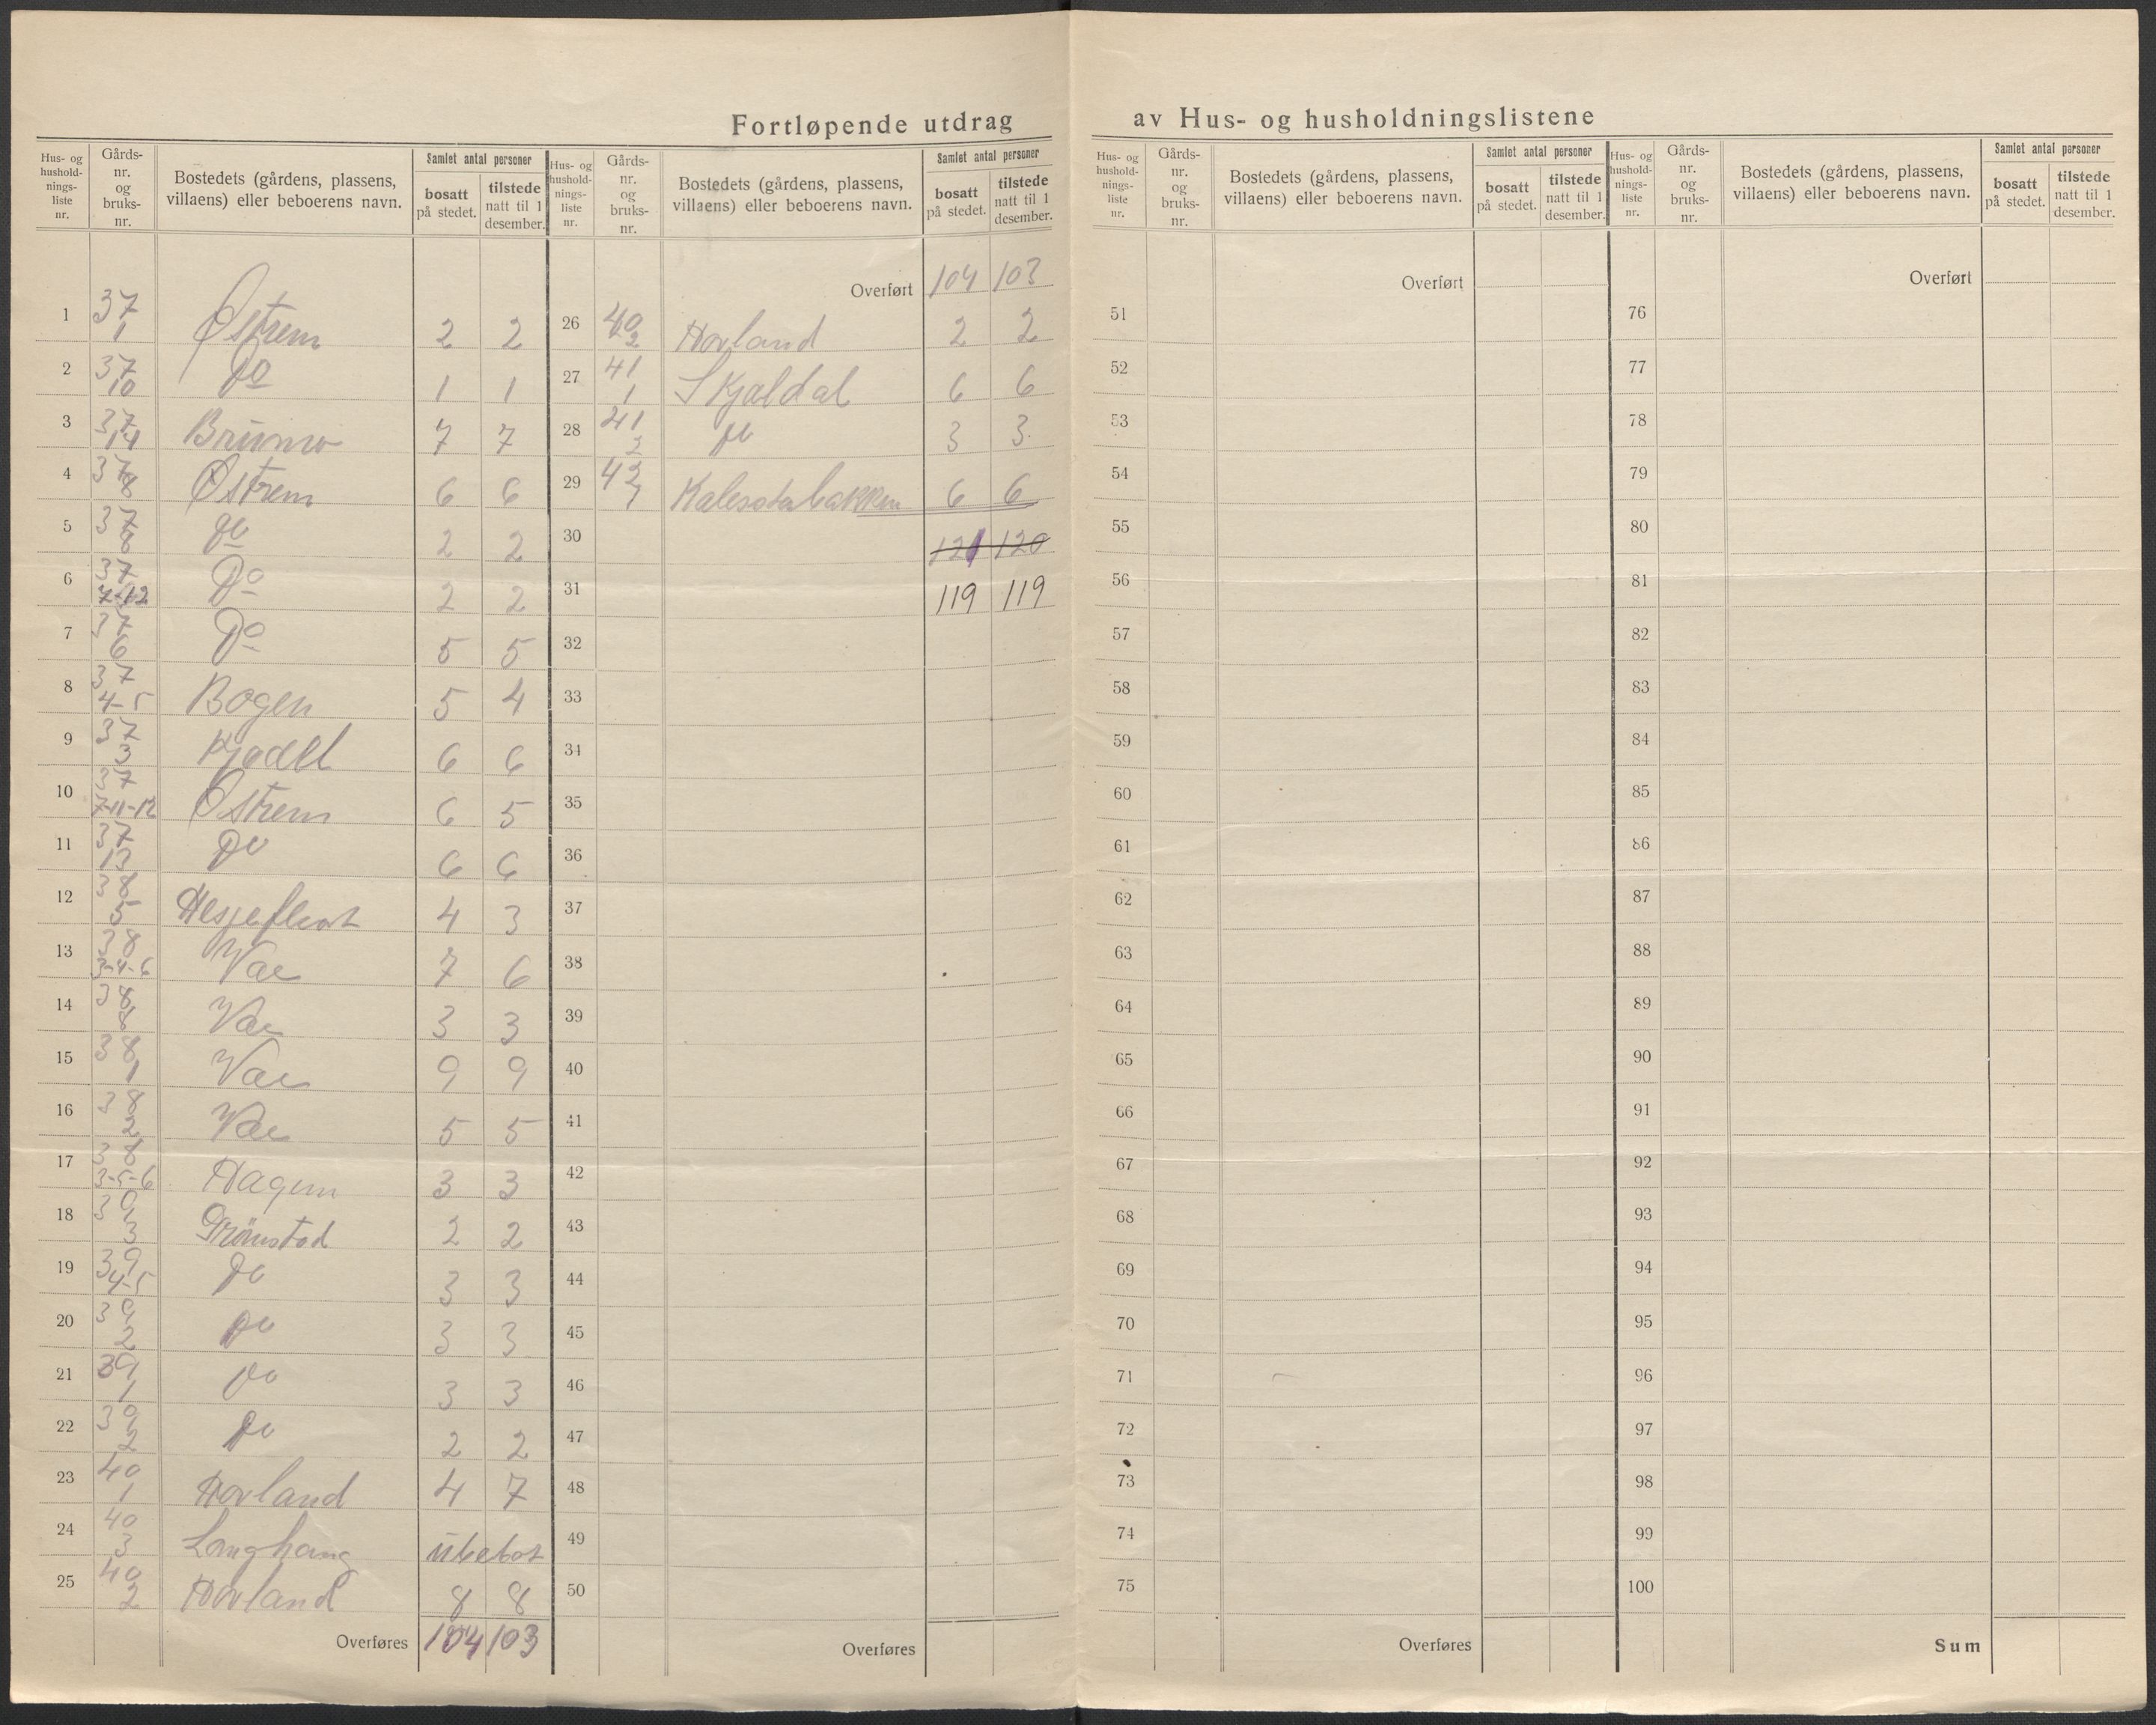 Fortløpende utdrag av Hus- og husholdningslistene
Hus- og hushold- nings- liste nr. Gårds- nr. og bruks- nr. Bostedets (gårdens, plassens, villaens) eller beboerens navn. Samlet antal personer bosatt på stedet. tilstede natt til 1 desember.
1 37 1 Østrem 2 2
2 37 10 Do 1 1
3 37 14 Brunmo 7 7
4 37 8 Østrem 6 6
5 37 8 Do 2 2
6 37 7-12 Do 2 2
7 37 6 Do 5 5
8 37 4-5 Bogen 5 4
9 37 3 6 6
10 37 7-11-12 Østrem 6 5
11 37 13 Do 6 6
12 38 5 4 3
13 38 3-4-6 Vae 7 6
14 38 8 Vae 3 3
15 38 1 Vae 9 9
16 38 2 Vae 5 5
17 38 3-5-6 Hagem 3 3
18 39 3 Grönstad 2 2
19 39 4-5 Do 3 3
20 39 2 Do 3 3
21 39 1 Do 3 3
22 39 2 Do 2 2
23 40 1 Hovland 4 7
24 40 3 Langhaug ubebot
25 40 2 Hovland 8 8
Overføres 104 103
Hus- og hushold- nings- liste nr. Gårds- nr. og bruks- nr. Bostedets (gårdens, plassens, villaens) eller beboerens navn. Samlet antal personer bosatt på stedet. tilstede natt til 1 desember.
Overført 104 103
26 40 2 Hovland 2 2
27 41 1 Skjaldal 6 6
28 41 2 Do 3 3
29 42 1 6 6
30 121 120
31 119 119
32
33
34
35
36
37
38
39
40
41
42
43
44
45
46
47
48
49
50
Overføres
Hus- og hushold- nings- liste nr. Gårds- nr. og bruks- nr. Bostedets (gårdens, plassens, villaens) eller beboerens navn. Samlet antal personer bosatt på stedet. tilstede natt til 1 desember.
Overført
51
52
53
54
55
56
57
58
59
60
61
62
63
64
65
66
67
68
69
70
71
72
73
74
75
Overføres
Hus- og hushold- nings- liste nr. Gårds- nr. og bruks- nr. Bostedets (gårdens, plassens, villaens) eller beboerens navn. Samlet antal personer bosatt på stedet. tilstede natt til 1 desember.
Overført
76
77
78
79
80
81
82
83
84
85
86
87
88
89
90
91
92
93
94
95
96
97
98
99
100
Sum